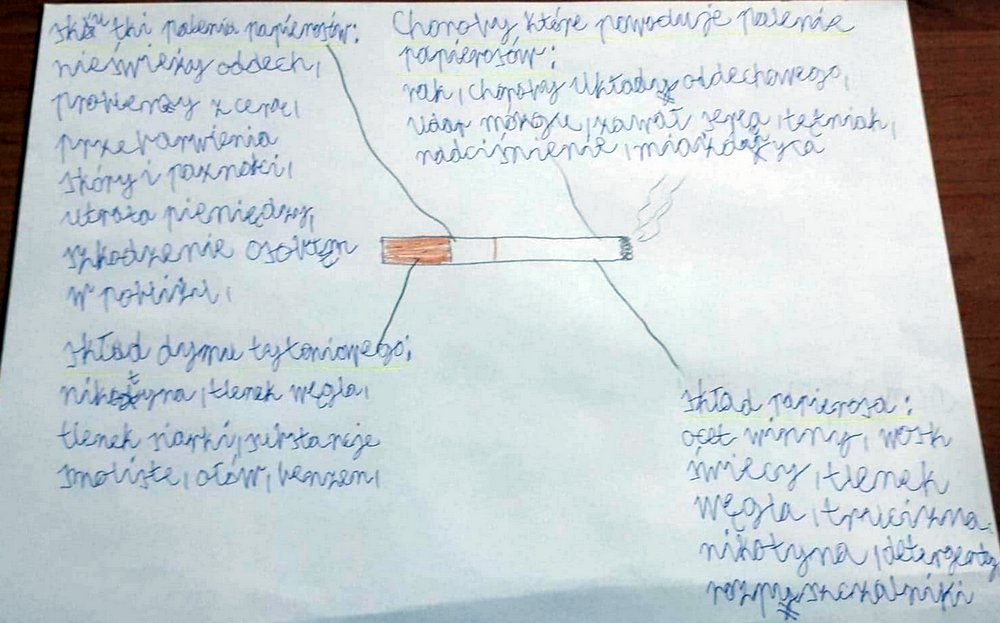 skutki palenia papierosów:
nieświeży oddech,
problemy z cerą,
przebarwienia
skóry i paznokci,
utrata pieniędzy,
szkodzenie osobom
w pobliżu,
Choroby, które powoduje palenie
papierosów:
rak, choroby układu oddechowego,
udar mózgu, zawał serca, tętniak,
nadciśnienie, miażdżyca
skład dymu tytoniowego:
nikotyna, tlenek węgla,
tlenek siarki, substancje
smoliste, ołów, benzen,
skład papierosa:
ocet winny, wosk
świecy, tlenek
węgla, trucizna,
nikotyna, detergenty,
rozpuszczalniki